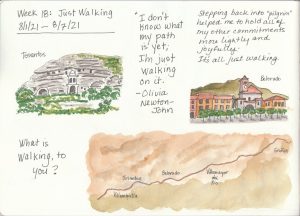 Week 18: Just Walking
8/1/21 - 8/7/21
Tosantos
"I don't
know what
my path
is yet;
I'm just
walking
on it.
- Olivia
Newton-
John
Stepping back into "pilgrim"
helped me to hold all of
my other commitments
more lightly and
joyfully.
It's all just walking.
Belorado
What is
Walking, to
you?
Grañón
Villamayor
del
Rio
Belorado
Tosantos
Villambistia